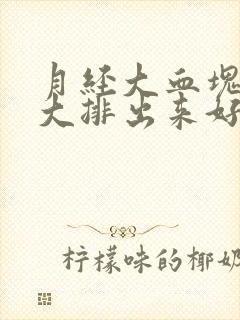 月经大血块
大排出来好
柠檬味的椰奶